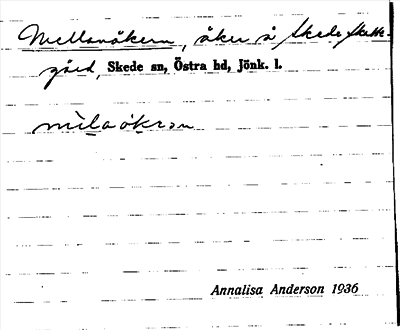 Mellanåkern, åker å Skede Skatte-
gård, Skede sn, Östra hd, Jönk. l.
mìlaåkrən
Annalisa Anderson 1936